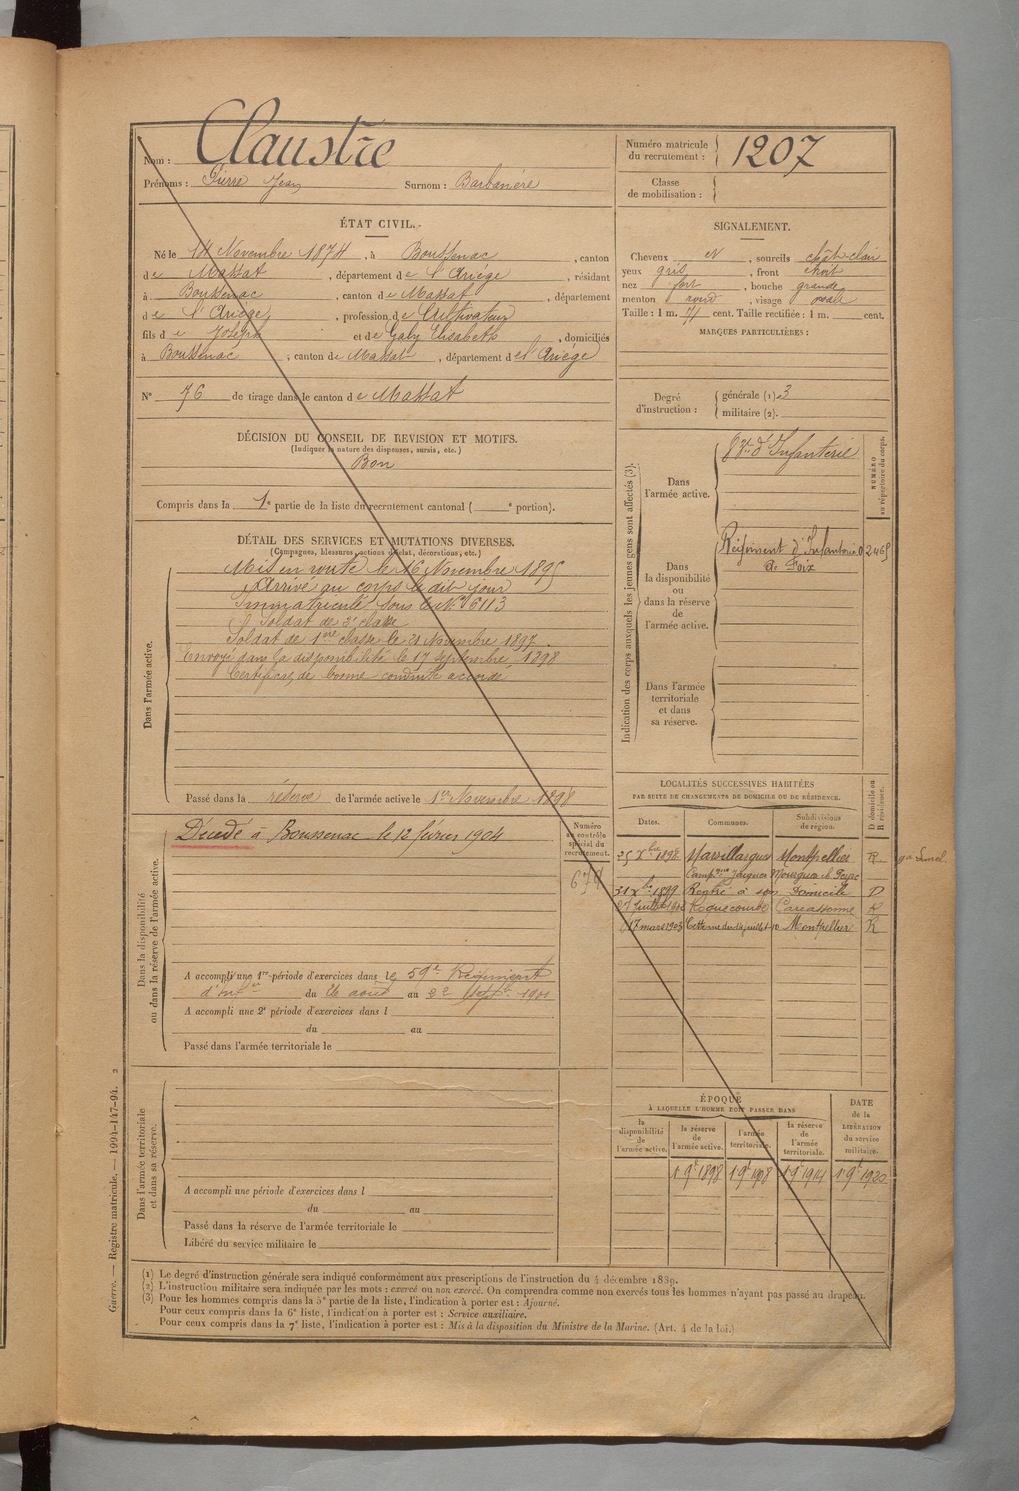 Nom : Claustre
Prénoms : Pierre Jean Surnom : Barbanère
Numéro matricule du recrutement : 1207
Classe de mobilisation :
ÉTAT CIVIL.
Né le 14 Novembre 1874, à Boussenac, canton
de Massat, département de l'Ariége, résidant
à Boussenac, canton de Massat, département
de l'Ariége, profession de Cultivateur
fils de Joseph et de Galy Elisabeth, domiciliés
à Boussenac, canton de Massat, département de l'Ariége
N° 76 de tirage dans le canton de Massat
DÉCISION DU CONSEIL DE REVISION ET MOTIFS.
(Indiquer la nature des dispenses, sursis, etc.)
Bon
Compris dans la 1e partie de la liste du recrutement cantonal ( e portion).
SIGNALEMENT.
Cheveux et, sourcils chât-clair
yeux gris, front étroit
nez fort, bouche grande
menton rond, visage ovale
Taille : 1 m. cent. Taille rectifiée : 1 m. cent.
MARQUES PARTICULIÈRES :
Degré d'instruction : générale (1). 3
militaire (2).
DÉTAIL DES SERVICES ET MUTATIONS DIVERSES.
(Campagnes, blessures, actions d'éclat, décorations, etc.)
Dans l'armée active.
Mis en route le 16 Novembre 1895
Arrivé au corps le dit jour
Immatriculé sous le N° 6113
Soldat de 2e classe
Soldat de 1ère classe le 21 Novembre 1897.
Envoyé dans la disponibilité le 17 septembre 1898
Certificat de bonne conduite accordé
Passé dans la réserve de l'armée active le 1er Novembre 1898
Indication des corps auxquels les jeunes gens sont affectés (3).
NUMÉRO au répertoire du corps.
Dans l'armée active.
d'Infanterie
Dans la disponibilité ou dans la réserve de l'armée active.
Régiment d'Infanterie 02465
de Foix
Dans l'armée territoriale et dans sa réserve.
Dans la disponibilité ou dans la réserve de l'armée active.
Décédé à Boussenac le 12 février 1904
Numéro au contrôle spécial du recrutement.
674
A accompli une 1re période d'exercices dans le 59e Régiment
d'Infie du 26 août au 22 septbre 1901
A accompli une 2e période d'exercices dans l
du au
Passé dans l'armée territoriale le
LOCALITÉS SUCCESSIVES HABITÉES
PAR SUITE DE CHANGEMENTS DE DOMICILE OU DE RÉSIDENCE.
D domicile ou R résidence.
Dates. Communes. Subdivisions de région.
25 Xbre 1898 Marsillargues Montpellier R
31 Xbre 1899 Rentré à son Domicile D
Juillet Roquecourbe Carcassonne R
17 mars 1903 Cette Montpellier R
Dans l'armée territoriale et dans sa réserve.
A accompli une période d'exercices dans l
du au
Passé dans la réserve de l'armée territoriale le
Libéré du service militaire le
ÉPOQUE
À LAQUELLE L'HOMME DOIT PASSER DANS
DATE de la LIBÉRATION du service militaire.
la disponibilité de l'armée active. la réserve de l'armée active. l'armée territoriale. la réserve de l'armée territoriale.
1 9e 1898 1 9e 1908 1 9e 1914 1 9e 1920
(1) Le degré d'instruction générale sera indiqué conformément aux prescriptions de l'instruction du 4 décembre 1889.
(2) L'instruction militaire sera indiquée par les mots : exercé ou non exercé. On comprendra comme non exercés tous les hommes n'ayant pas passé au drapeau.
(3) Pour les hommes compris dans la 5e partie de la liste, l'indication à porter est : Ajourné.
Pour ceux compris dans la 6e liste, l'indication à porter est : Service auxiliaire.
Pour ceux compris dans la 7e liste, l'indication à porter est : Mis à la disposition du Ministre de la Marine. (Art. 4 de la loi.)
Guerre. — Registre matricule. — 1994-147-94. 2